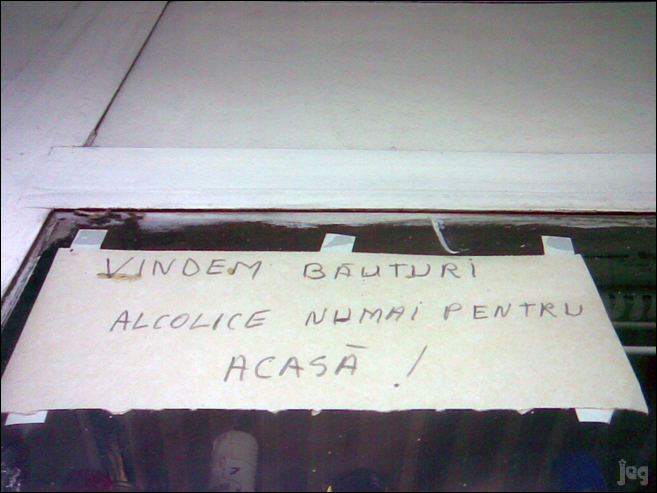 VINDEM BĂUTURI
ALCOLICE NUMAI PENTRU
ACASĂ !
jeg